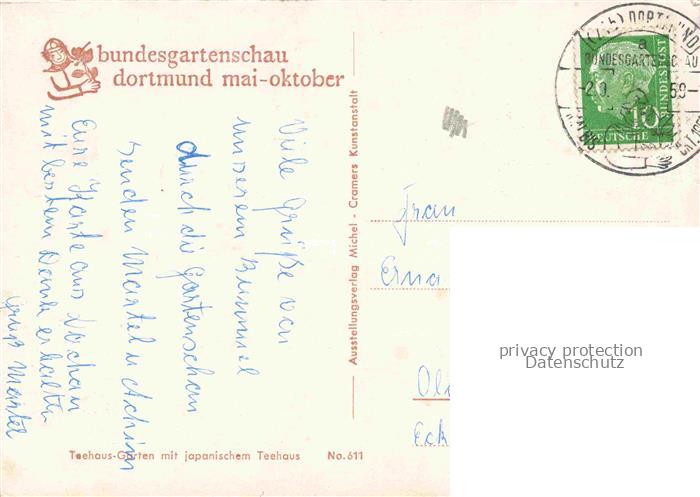 bundesgartenschau
dortmund mai-oktober
Viele Grüße von
unserem Bummel
durch die Gartenschau
senden Martel u Achim
Eure Karte aus Lochau
mit bestem Dank erhalten
Gruß Martel
Teehaus-Garten mit japanischem Teehaus No. 611
Ausstellungsverlag Michel - Cramers Kunstanstalt
DORTMUND
a
BUNDESGARTENSCHAU
59
10
DEUTSCHE
BUNDESPOST
Frau
Erna
Eck
privacy protection
Datenschutz